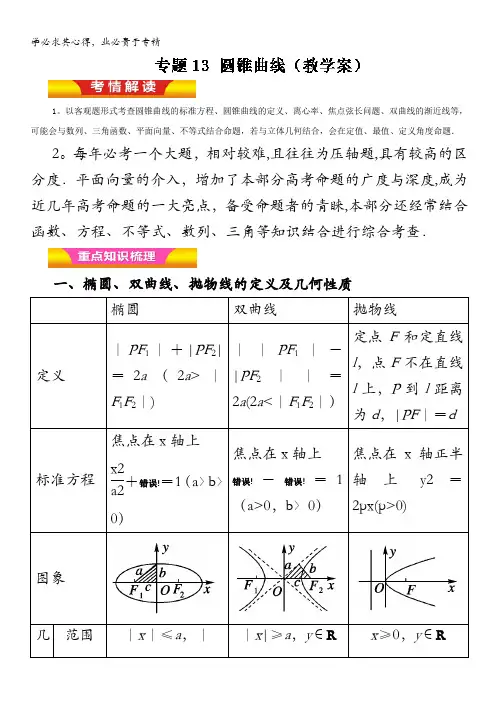 学必求其心得，业必贵于专精
专题13 圆锥曲线（教学案）
考情解读
1。以客观题形式考查圆锥曲线的标准方程、圆锥曲线的定义、离心率、焦点弦长问题、双曲线的渐近线等，
可能会与数列、三角函数、平面向量、不等式结合命题，若与立体几何结合，会在定值、最值、定义角度命题．
2。每年必考一个大题，相对较难,且往往为压轴题,具有较高的区
分度．平面向量的介入，增加了本部分高考命题的广度与深度,成为
近几年高考命题的一大亮点，备受命题者的青睐,本部分还经常结合
函数、方程、不等式、数列、三角等知识结合进行综合考查．
重点知识梳理
一、椭圆、双曲线、抛物线的定义及几何性质
椭圆 双曲线 抛物线
定义
｜PF1｜＋|PF2|
＝2a（2a>｜
F1F2｜)
｜｜PF1｜－
|PF2｜｜＝
2a(2a<｜F1F2｜)
定点F和定直线
l，点F不在直线
l上，P到l距离
为d，|PF｜＝d
标准方程
焦点在x轴上
x2
a2
＋错误!＝1（a〉b〉
0）
焦点在x轴上
错误!－错误!＝1
（a>0，b〉0）
焦点在x轴正半
轴上y2＝
2px(p>0)
图象
y a b F1 c O F2 x
y a b F1 O c F2 x
y O F x
几 范围
｜x｜≤a，｜
｜x|≥a，y∈R
x≥0，y∈R